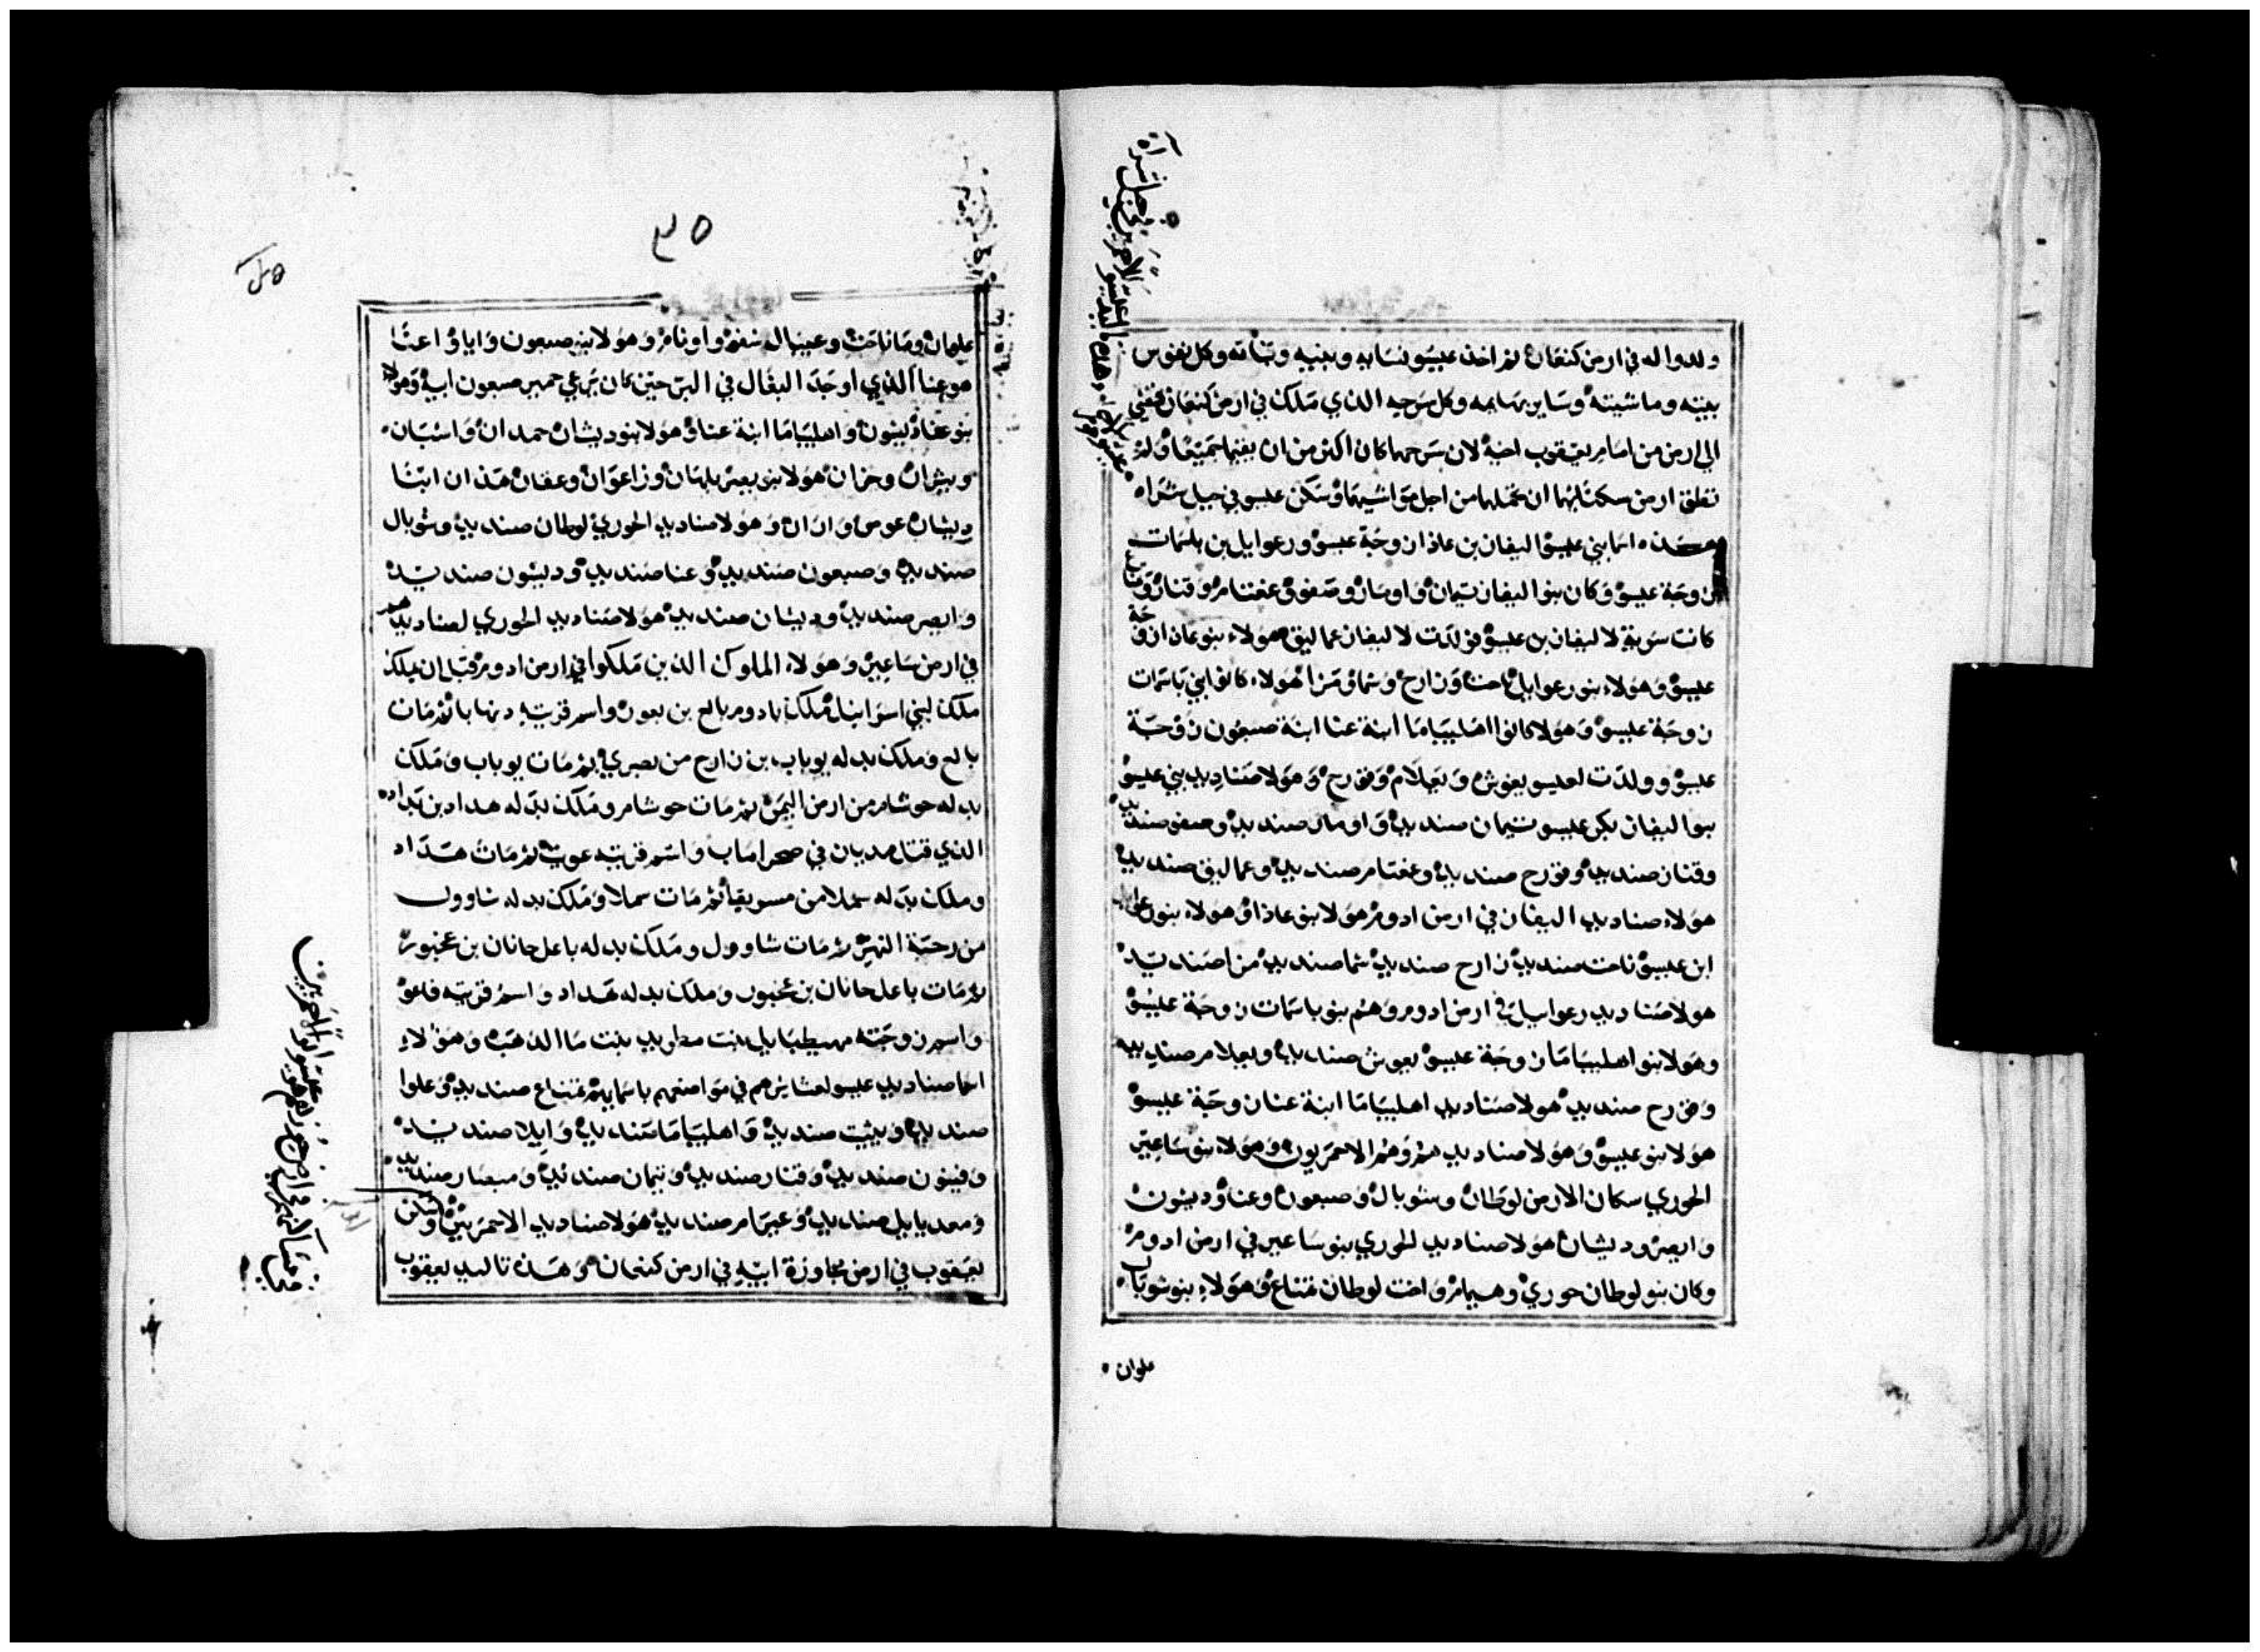 ولدوا له في ارض كنعان ثم اخذ عيسو نسايه وبنيه وبناته وكل نفوس
بيته وماشيته وساير بهايمه وكل سرحه الذي ملك في ارض كنعان فمضى
الى ارض من امام يعقوب اخيه لان سرحهما كان اكثر من ان يقيما جميعا ولم
تطق ارض سكناهما ان تحملهما من اجل مواشيهما وسكن عيسو في جبل شراه
اسما بني عيسو اليفاز بن عاذا زوجة عيسو ورعوايل بن بسمات
زوجة عيسو وكان بنو اليفاز تيمان واومار وصفو وعغثام وقناز
كانت سرية لاليفاز بن عيسو فولدت لاليفاز عماليق هولاء بنو عاذا زوجة
عيسو وهولاء بنو رعوايل ناحث وزارح وشما ومزا هولاء كانوا بني باسمات
زوجة عيسو وهولا كانوا اهليباما ابنة عنا ابنة صبعون زوجة
عيسو وولدت لعيسو يعوش ويعلام وقورح وهولا صناديد بني عيسو
بنو اليفاز بكر عيسو تيمان صنديد واومار صنديد وصفو صنديد
وقناز صنديد وقورح صنديد وغغثام صنديد وعماليق صنديد
هولاء صناديد اليفاز في ارض ادوم هولا بنو عاذا وهولاء بنو رعوايل
ابن عيسو ناحث صنديد زارح صنديد شما صنديد مزا صنديد
هولا صناديد رعوايل في ارض ادوم وهم بنو باسمات زوجة عيسو
وهولا بنو اهليباما زوجة عيسو يعوش صنديد ويعلام صنديد
وقورح صنديد هولا صناديد اهليباما ابنة عنا زوجة عيسو
هولا بنو عيسو وهولا صناديد هم وهم الاحمريون وهولا بنو ساعير
الحوري سكان الارض لوطان وشوبال وصبعون وعنا وديشون
وايصر وديشان هولا صناديد الحوري بنو ساعير في ارض ادوم
وكان بنو لوطان حوري وهيمام واخت لوطان تمناع وهولاء بنو شوبال
علوان
٣٥
علوان وماناحث وعيبال شفو واونام وهولا بنو صبعون وايا وعنا
هو عنا الذي اوجد البغال في البر حين كان يرعي حمير صبعون ابيه وهولا
بنو عنا ديشون واهليباما ابنة عنا وهولا بنو ديشان حمدان واشبان
ويثران وخران هولا بنو يصر بلهان وزاعوان وعقان هذان ابنا
ديشان عوص واران وهولا صناديد الحوري لوطان صنديد وشوبال
صنديد وصبعون صنديد وعنا صنديد وديشون صنديد
وايصر صنديد وديشان صنديد هولا صناديد الحوري لصناديدهم
في ارض ساعير وهولاء الملوك الذين ملكوا في ارض ادوم قبل ان يملك
ملك لبني اسراييل ملك بادوم بالع بن بعور واسم قريته دنهابا ثم مات
بالع وملك بدله يوباب بن زارح من بصري ثم مات يوباب وملك
بدله حوشام من ارض اليمن ثم مات حوشام وملك بدله هداد بن بداد
الذي قتل مديان في صحرا ماب واسم قريته عويث ثم مات هداد
وملك بدله سملا من مسريقا ثم مات سملا وملك بدله شاوول
من رحبة النهر ثم مات شاوول وملك بدله باعل حانان بن عخبور
ثم مات باعل حانان بن عخبور وملك بدله هداد واسم قريته فاعو
واسم زوجته مهيطبايل بنت مطريد بنت ما الذهب وهولاء
اسما صناديد عيسو لعشايرهم في مواضعهم باسمايهم تمناع صنديد وعلوا
صنديد ويثيث صنديد واهليباما صنديد وايلا صنديد
وفينون صنديد وقناز صنديد وتيمان صنديد ومبصار صنديد
ومجديايل صنديد وعيرام صنديد هولا صناديد الاحمريين وسكن
يعقوب في ارض مجاوزة ابيه في ارض كنعان وهذه تاليد يعقوب